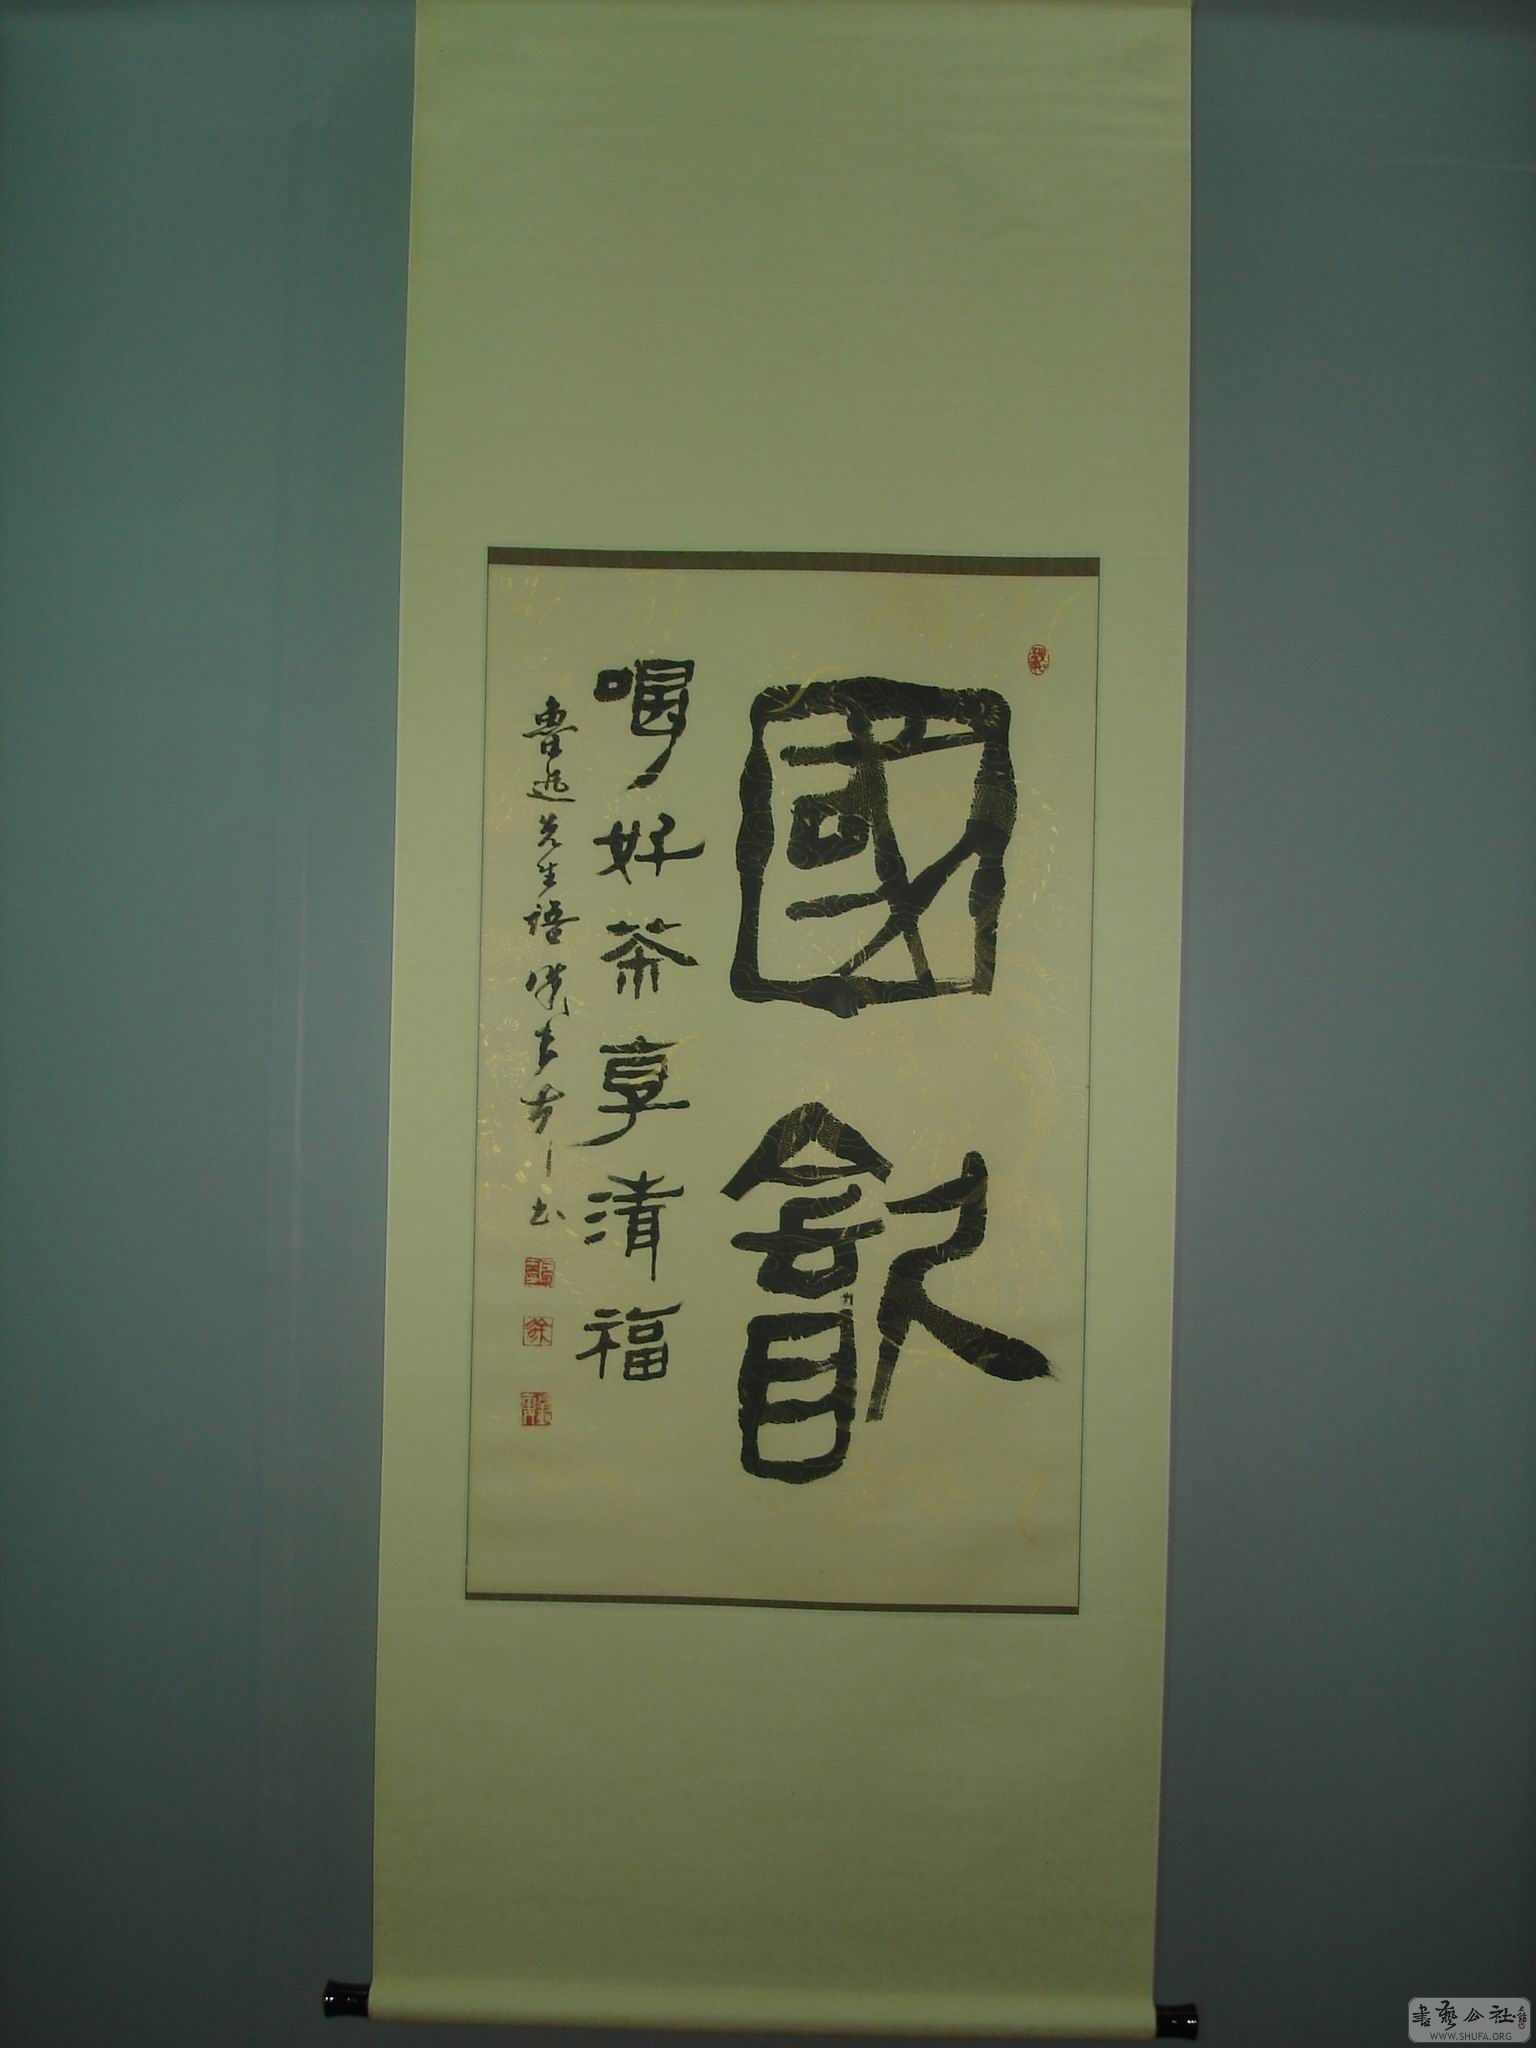 國飲
喝好茶享清福
魯迅先生語
書藝公社
WWW.SHUFA.ORG